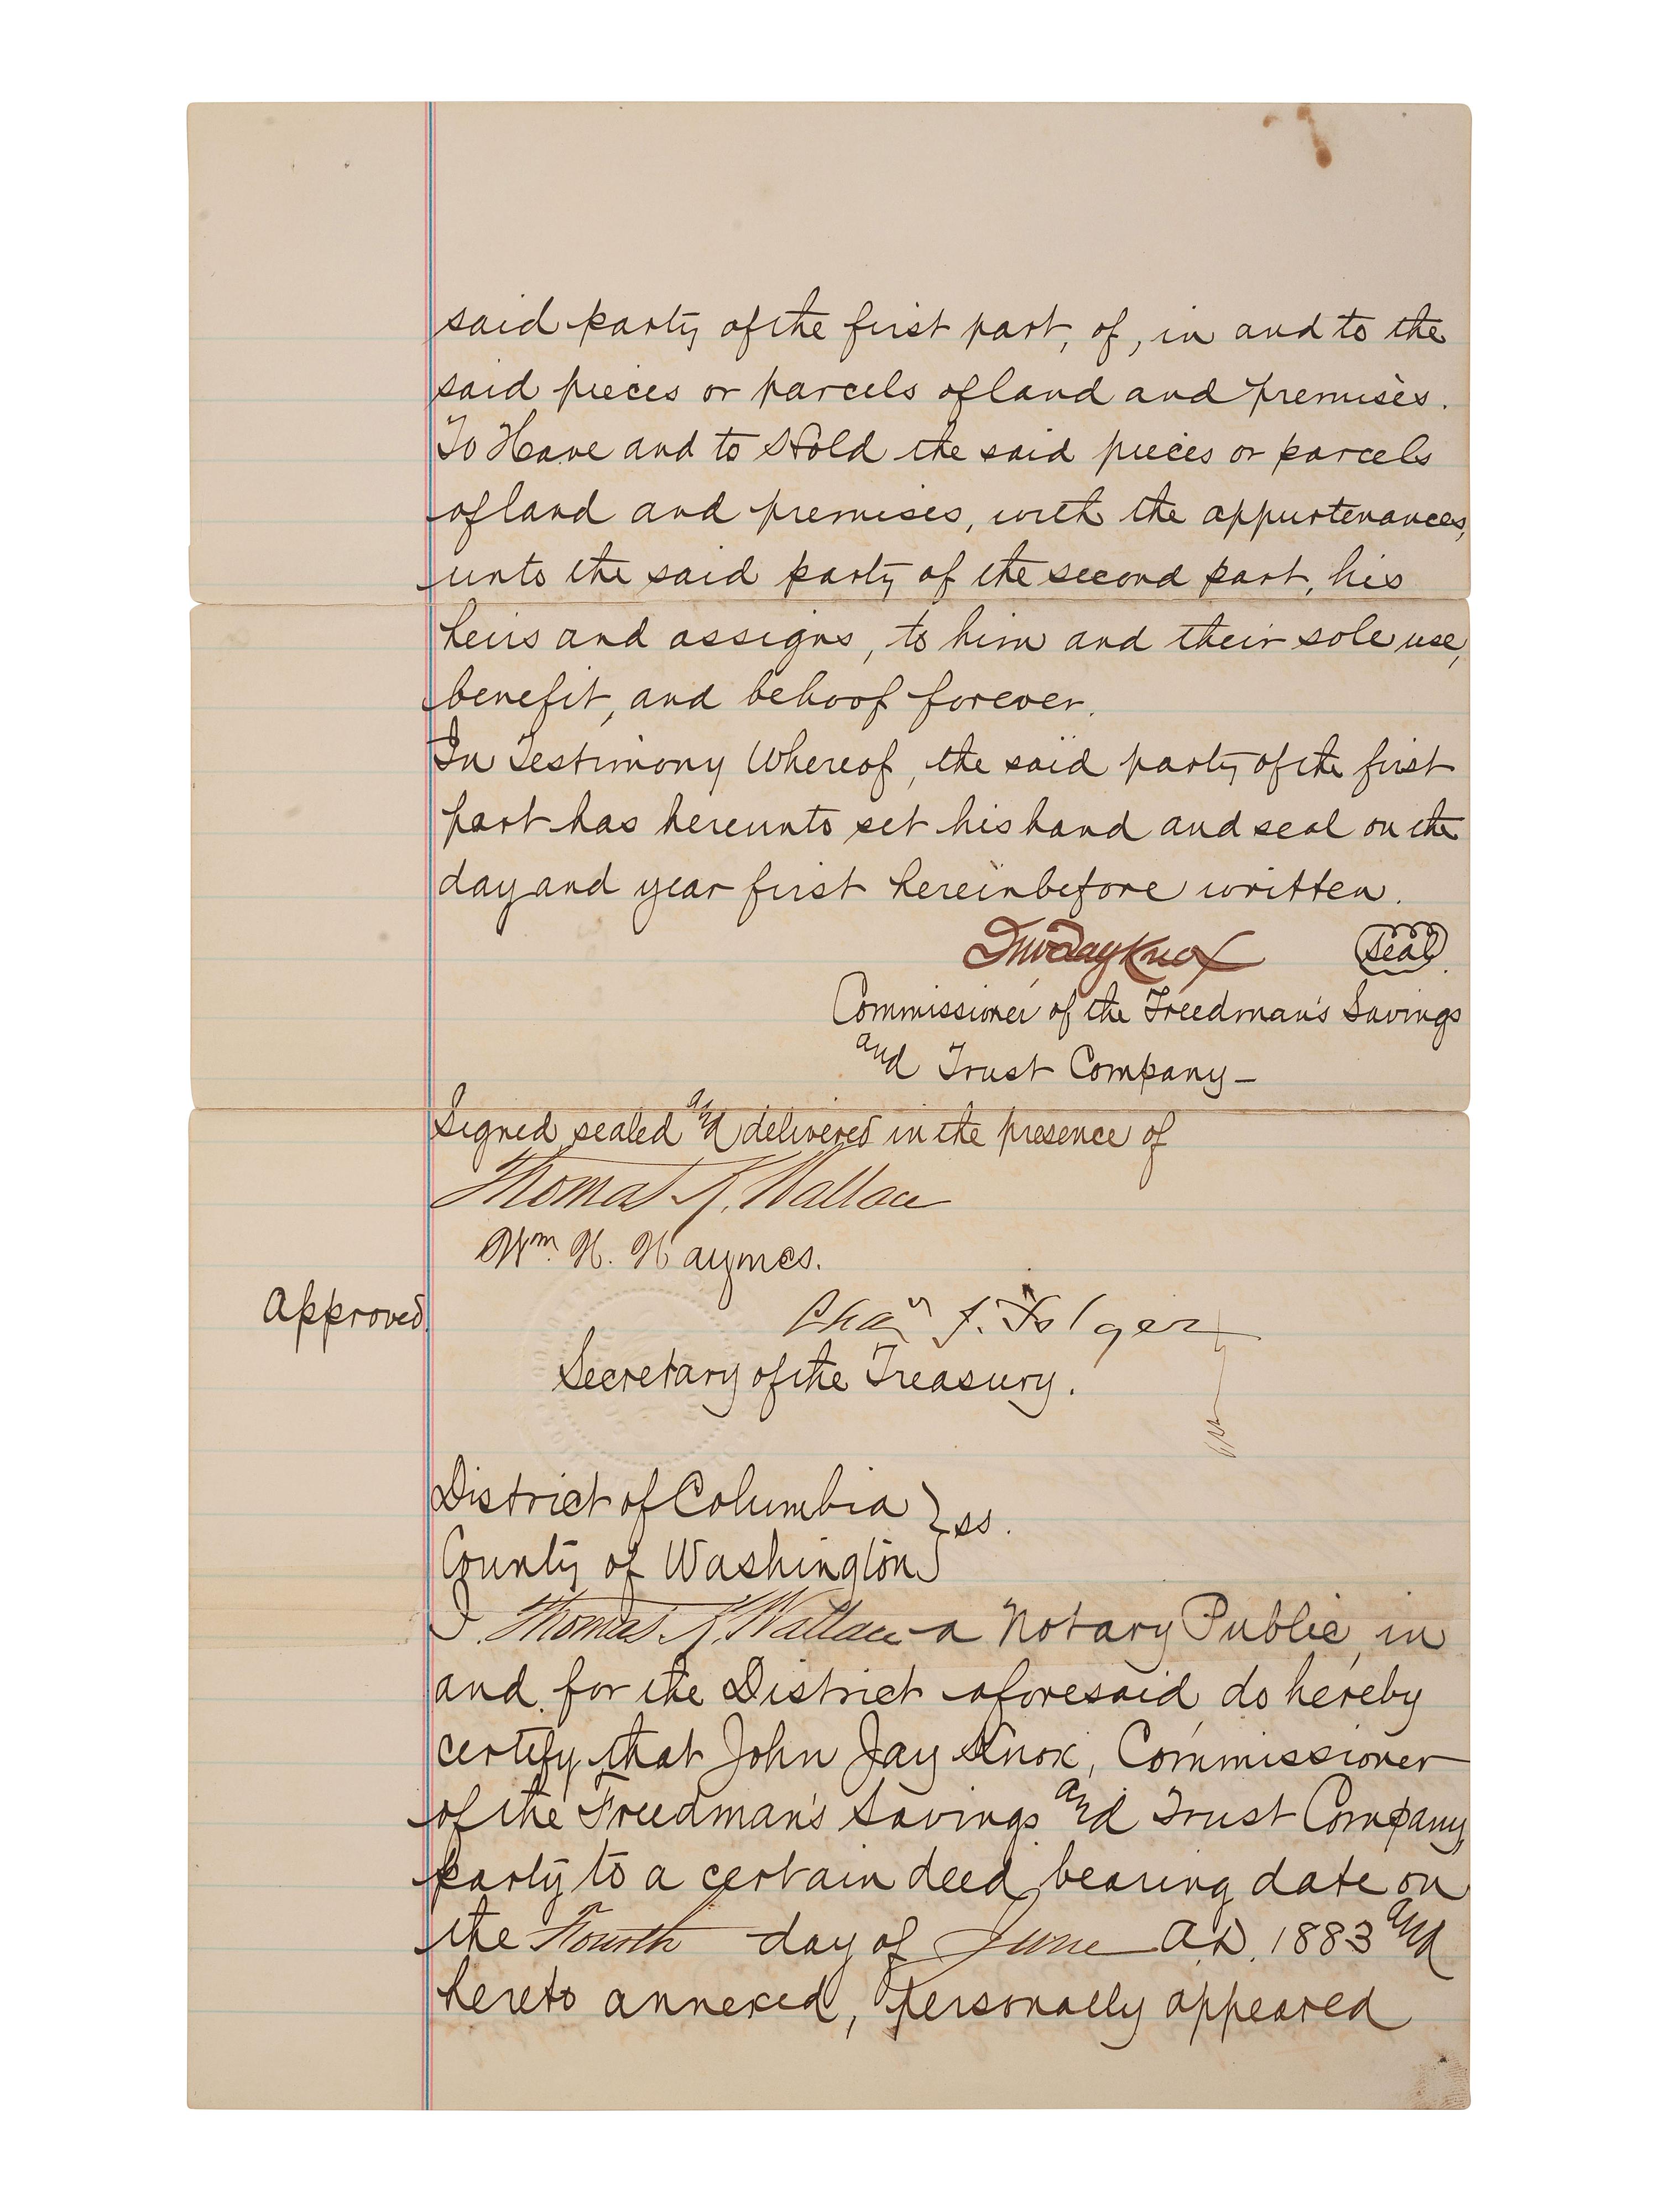 said party of the first part, of, in and to the
said pieces or parcels of land and premises.
To Have and to Hold the said pieces or parcels
of land and premises, with the appurtenances,
unto the said party of the second part, his
heirs and assigns, to him and their sole use,
benefit, and behoof forever.
In Testimony Whereof, the said party of the first
part has hereunto set his hand and seal on the
day and year first hereinbefore written.
Jno Jay Knox seal.
Commissioner of the Freedman's Savings
and Trust Company-
Signed, sealed and delivered in the presence of
Thomas K. Wallace
Wm. H. Haymes.
Approved. Chas J. Folger
Secretary of the Treasury.
District of Columbia } ss.
County of Washington }
I Thomas K. Wallace a Notary Public, in
and for the District aforesaid, do hereby
certify that John Jay Knox, Commissioner
of the Freedman's Savings and Trust Company,
party to a certain deed bearing date on
the Fourth day of June A.D. 1883 and
hereto annexed, personally appeared